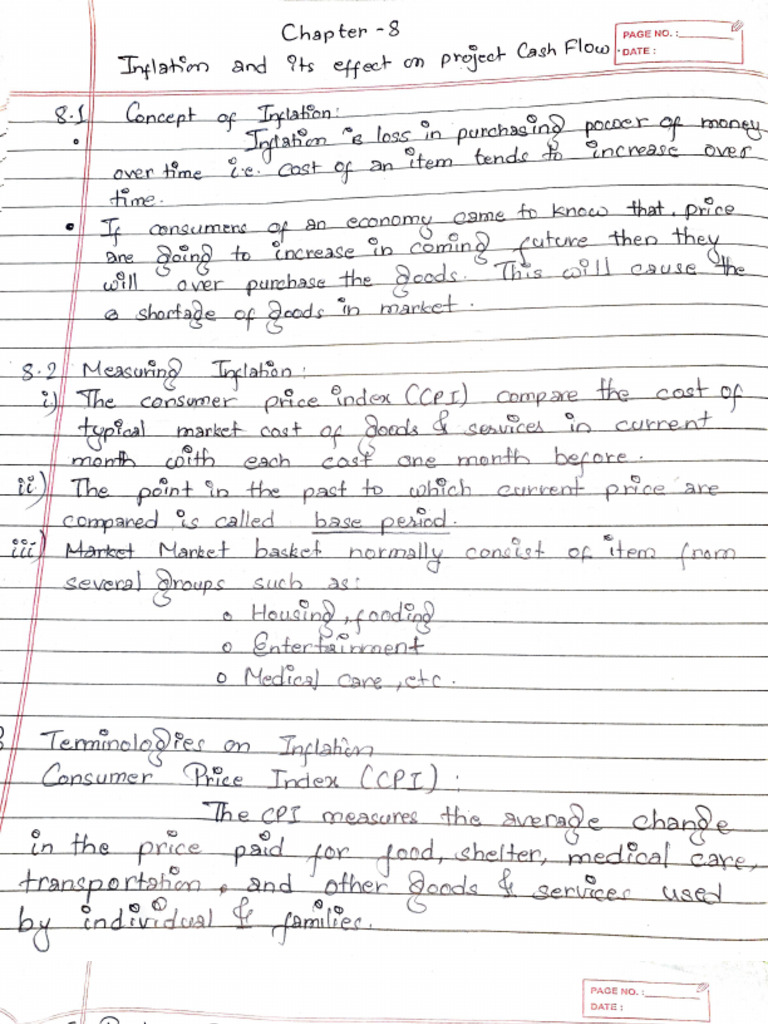 Chapter - 8
PAGE NO. :
DATE :
Inflation and its effect on project Cash Flow.
8.1 Concept of Inflation:
• Inflation is loss in purchasing power of money
over time i.e. cost of an item tends to increase over
time.
• If consumers of an economy came to know that, price
are going to increase in coming future then they
will over purchase the goods. This will cause the
a shortage of goods in market.
8.2 Measuring Inflation:
i) The consumer price index (CPI) compare the cost of
typical market cost of goods & services in current
month with each cost one month before.
ii) The point in the past to which current price are
compared is called base period.
iii) Market Market basket normally consist of item from
several groups such as:
o Housing, fooding
o Entertainment
o Medical care, etc.
Terminologies on Inflation
Consumer Price Index (CPI):
The CPI measures the average change
in the price paid for food, shelter, medical care,
transportation, and other goods & services used
by individual & families.
PAGE NO. :
DATE :